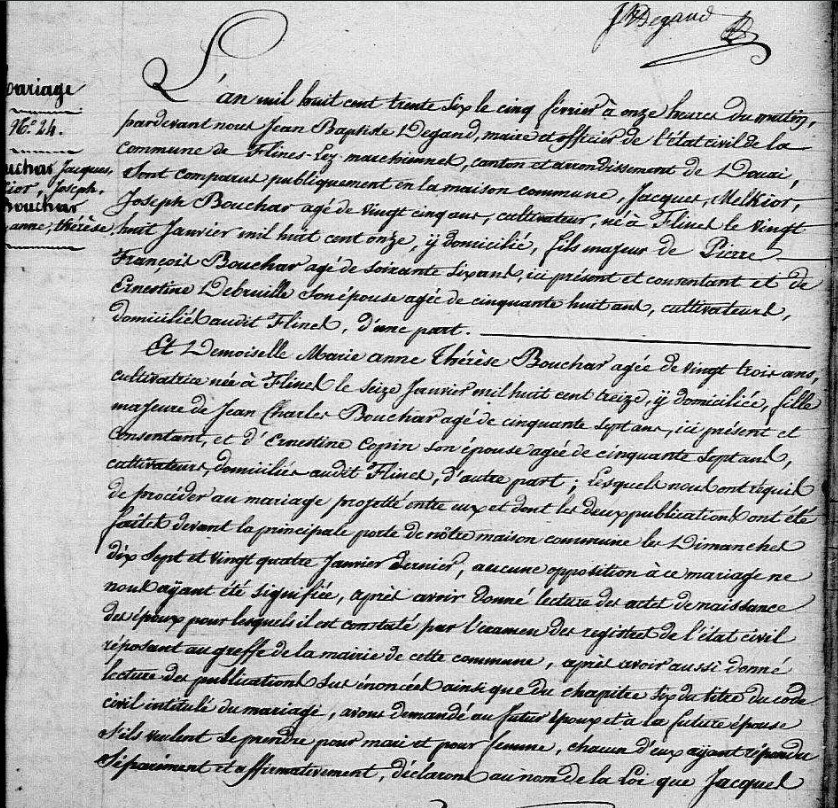 JBDegand
Mariage
N.° 24.
Bouchar Jacques,
Melkior, Joseph.
Bouchar
anne, thérèse,
L'an mil huit cent trente six le cinq février à onze heures du matin,
pardevant nous Jean Baptiste Degand, maire et officier de l'état civil de la
commune de Flines-Lez-marchiennes, canton et arrondissement de Douai,
Sont comparus publiquement en la maison commune, Jacques, Melkior,
Joseph Bouchar agé de vingt cinq ans, cultivateur, né à Flines le vingt
huit Janvier mil huit cent onze, y domicilié, fils majeur de Pierre
François Bouchar agé de soixante six ans, ici présent et consentant et de
Ernestine Debruille son épouse agée de cinquante huit ans, cultivateurs,
domiciliés audit Flines, d'une part.
Et Demoiselle Marie anne Thérèse Bouchar agée de vingt trois ans,
cultivatrice née à Flines le seize Janvier mil huit cent treize, y domiciliée, fille
majeure de Jean Charles Bouchar agé de cinquante sept ans, ici présent et
consentant, et d'Ernestine Copin son épouse agée de cinquante sept ans,
cultivateurs, domiciliés audit Flines, d'autre part ; lesquels nous ont requis
de procéder au mariage projetté entre eux et dont les deux publications ont été
faites devant la principale porte de nôtre maison commune les Dimanches
dix Sept et vingt quatre Janvier dernier, aucune opposition à ce mariage ne
nous ayant été signifiée, après avoir donné lecture des actes de naissance
des époux pour lesquels il est constaté par l'examen des registres de l'état civil
réposant au greffe de la mairie de cette commune, après avoir aussi donné
lecture des publications sus énoncées ainsi que du chapitre six du titre du code
civil intitulé du mariage, avons demandé au futur époux et à la future épouse
s'ils veulent se prendre pour mari et pour femme, chacun d'eux ayant répondu
séparément et affirmativement, déclarons au nom de la Loi que Jacques